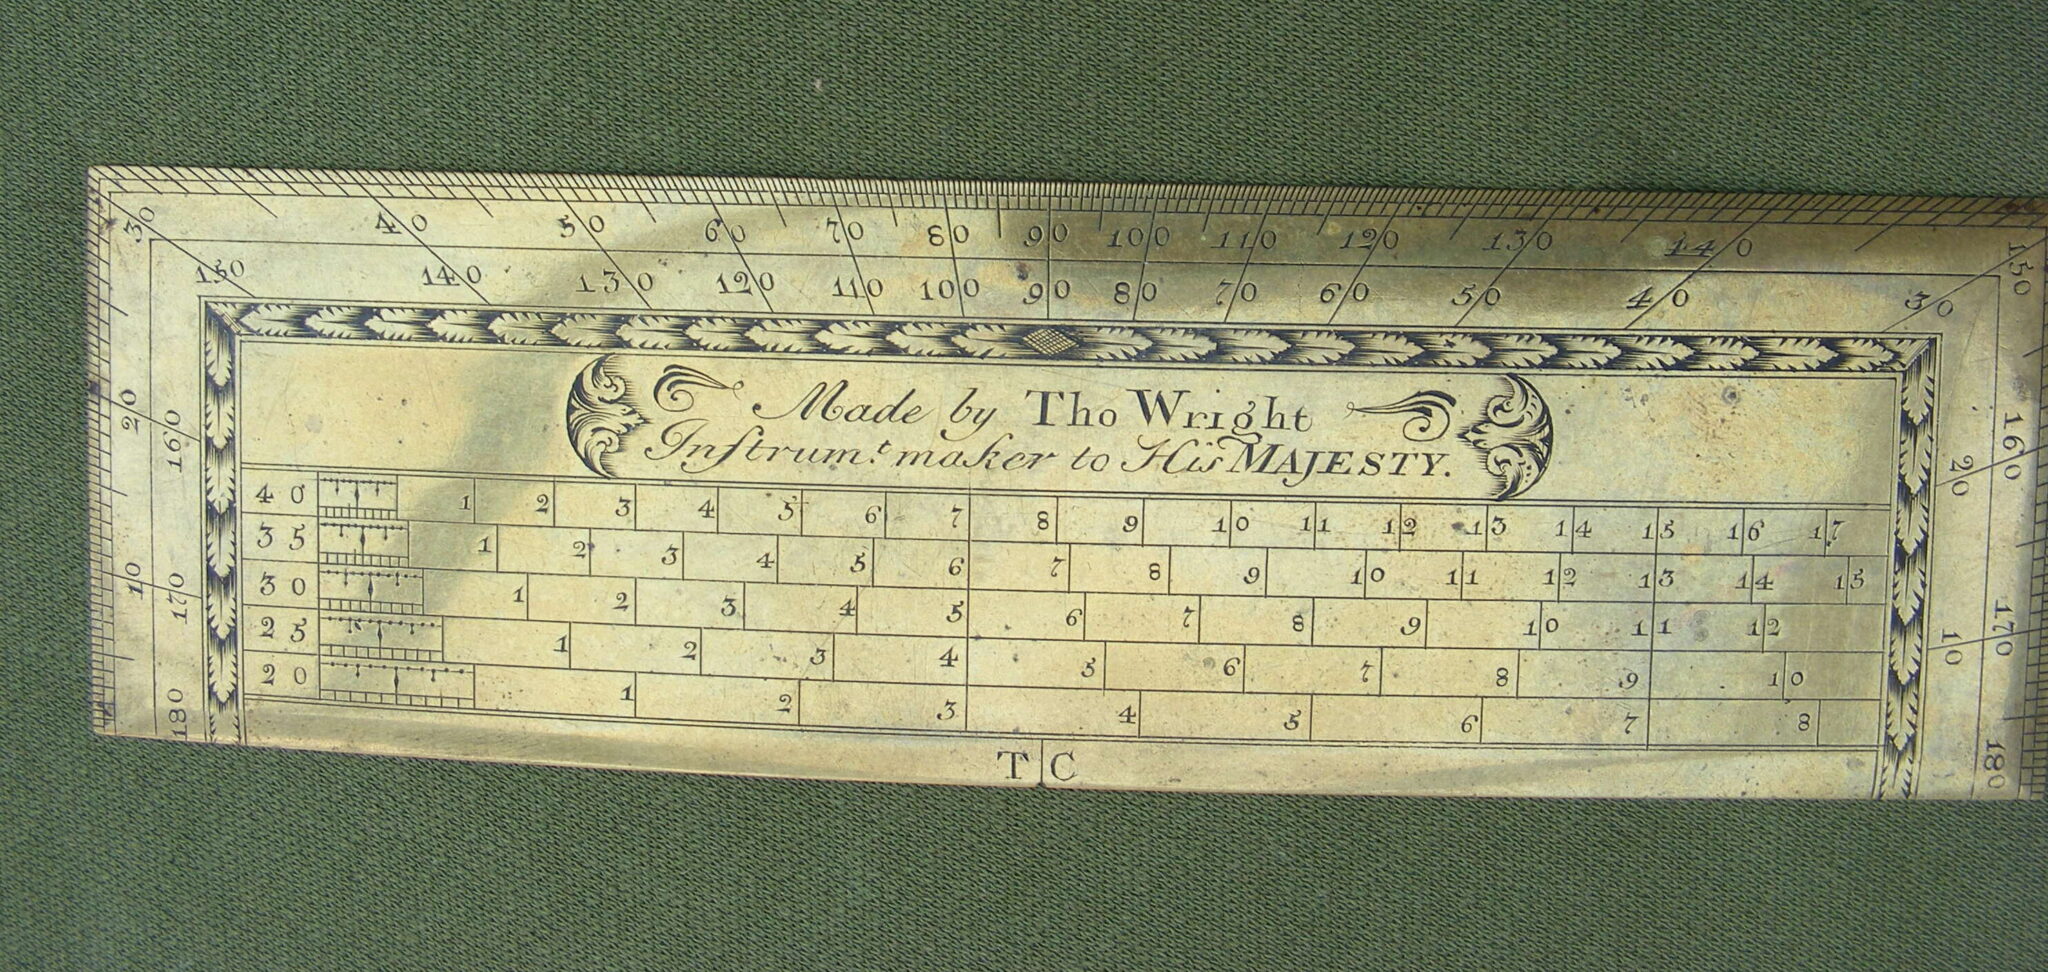 30 40 50 60 70 80 90 100 110 120 130 140 150
150 140 130 120 110 100 90 80 70 60 50 40 30
20 160
10 170
180
160 20
170 10
180
Made by Tho Wright
Inſtrum.t maker to His MAJESTY.
40 1 2 3 4 5 6 7 8 9 10 11 12 13 14 15 16 17
35 1 2 3 4 5 6 7 8 9 10 11 12 13 14 15
30 1 2 3 4 5 6 7 8 9 10 11 12
25 1 2 3 4 5 6 7 8 9 10
20 1 2 3 4 5 6 7 8
T C